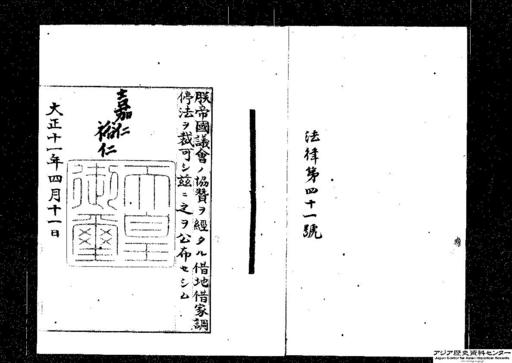 法律第四十一號
朕帝國議會ノ協贊ヲ經タル借地借家調
停法ヲ裁可シ茲ニ之ヲ公布セシム
嘉仁
裕仁
天皇
御璽
大正十一年四月十一日
アジア歴史資料センター
Japan Center for Asian Historical Records